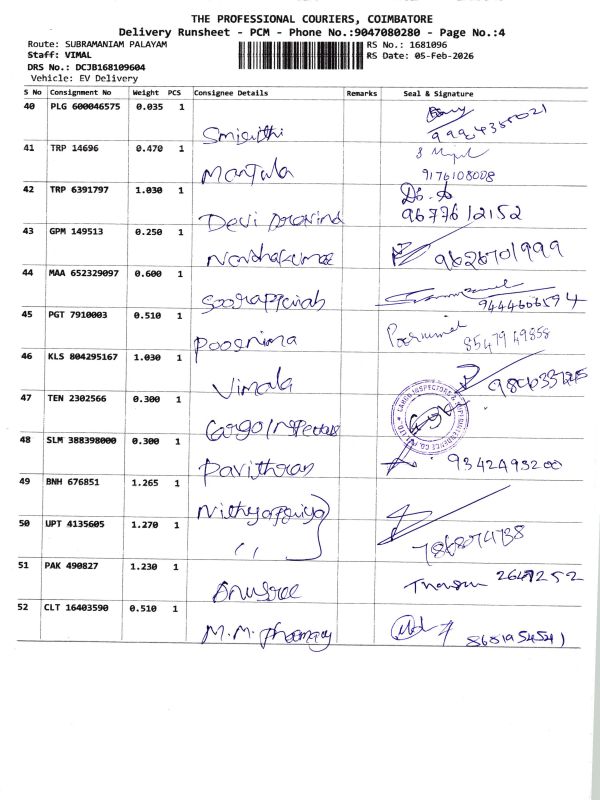 THE PROFESSIONAL COURIERS, COIMBATORE
Delivery Runsheet - PCM - Phone No.:9047080280 - Page No.:4
Route: SUBRAMANIAM PALAYAM
Staff: VIMAL
DRS No.: DCJB168109604
Vehicle: EV Delivery
RS No.: 1681096
RS Date: 05-Feb-2026
S No Consignment No Weight PCS Consignee Details Remarks Seal & Signature
40 PLG 600046575 0.035 1
41 TRP 14696 0.470 1 Manjula 9176108008
42 TRP 6391797 1.030 1 Devi Aravind 9677612152
43 GPM 149513 0.250 1 Nandhakumar 9626701999
44 MAA 652329097 0.600 1 9444606594
45 PGT 7910003 0.510 1 Poornima 8547949858
46 KLS 804295167 1.030 1 Vimala
47 TEN 2302566 0.300 1 Cargo Inspectors
48 SLM 388398000 0.300 1 Pavithran 9342493200
49 BNH 676851 1.265 1 Nithyapriya
50 UPT 4135605 1.270 1 " 7868074738
51 PAK 490827 1.230 1 Anusree
52 CLT 16403590 0.510 1 M.M. Pharmacy